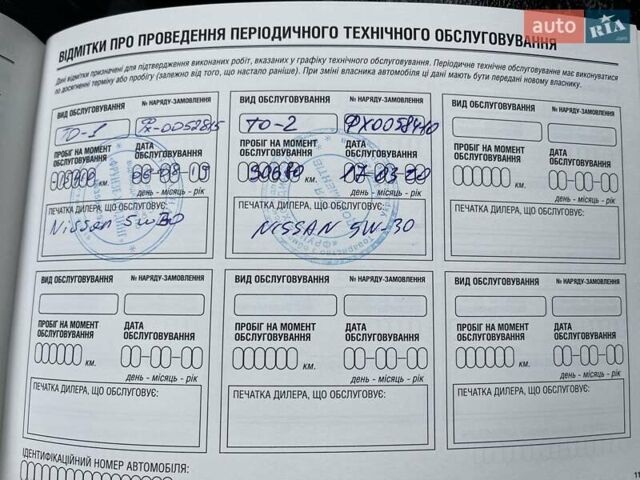 auto RIA
ВІДМІТКИ ПРО ПРОВЕДЕННЯ ПЕРІОДИЧНОГО ТЕХНІЧНОГО ОБСЛУГОВУВАННЯ
Дані відмітки призначені для підтвердження виконаних робіт, вказаних у графіку технічного обслуговування. Періодичне технічне обслуговування має виконуватися
по досягненні терміну або пробігу (залежно від того, що настало раніше). При зміні власника автомобіля ці дані мають бути передані новому власнику.
ВИД ОБСЛУГОВУВАННЯ № НАРЯДУ-ЗАМОВЛЕННЯ
ТО-1
ПРОБІГ НА МОМЕНТ ОБСЛУГОВУВАННЯ
ДАТА ОБСЛУГОВУВАННЯ
км.
день - місяць - рік
ПЕЧАТКА ДИЛЕРА, ЩО ОБСЛУГОВУЄ:
Nissan 5w30
ВИД ОБСЛУГОВУВАННЯ № НАРЯДУ-ЗАМОВЛЕННЯ
ТО-2
ПРОБІГ НА МОМЕНТ ОБСЛУГОВУВАННЯ
ДАТА ОБСЛУГОВУВАННЯ
км. 17-03-20
день - місяць - рік
ПЕЧАТКА ДИЛЕРА, ЩО ОБСЛУГОВУЄ:
NISSAN 5W-30
ВИД ОБСЛУГОВУВАННЯ № НАРЯДУ-ЗАМОВЛЕННЯ
ПРОБІГ НА МОМЕНТ ОБСЛУГОВУВАННЯ
ДАТА ОБСЛУГОВУВАННЯ
км.
день - місяць - рік
ПЕЧАТКА ДИЛЕРА, ЩО ОБСЛУГОВУЄ:
ВИД ОБСЛУГОВУВАННЯ № НАРЯДУ-ЗАМОВЛЕННЯ
ПРОБІГ НА МОМЕНТ ОБСЛУГОВУВАННЯ
ДАТА ОБСЛУГОВУВАННЯ
км.
день - місяць - рік
ПЕЧАТКА ДИЛЕРА, ЩО ОБСЛУГОВУЄ:
ВИД ОБСЛУГОВУВАННЯ № НАРЯДУ-ЗАМОВЛЕННЯ
ПРОБІГ НА МОМЕНТ ОБСЛУГОВУВАННЯ
ДАТА ОБСЛУГОВУВАННЯ
км.
день - місяць - рік
ПЕЧАТКА ДИЛЕРА, ЩО ОБСЛУГОВУЄ:
ВИД ОБСЛУГОВУВАННЯ № НАРЯДУ-ЗАМОВЛЕННЯ
ПРОБІГ НА МОМЕНТ ОБСЛУГОВУВАННЯ
ДАТА ОБСЛУГОВУВАННЯ
км.
день - місяць - рік
ПЕЧАТКА ДИЛЕРА, ЩО ОБСЛУГОВУЄ:
ІДЕНТИФІКАЦІЙНИЙ НОМЕР АВТОМОБІЛЯ: